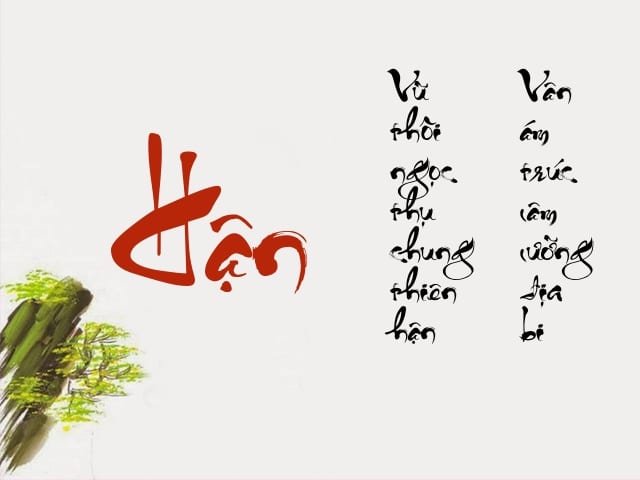 Hận
Vũ thôi ngọc thụ chung thiên hận
Vân ám trúc lâm lưỡng địa bi